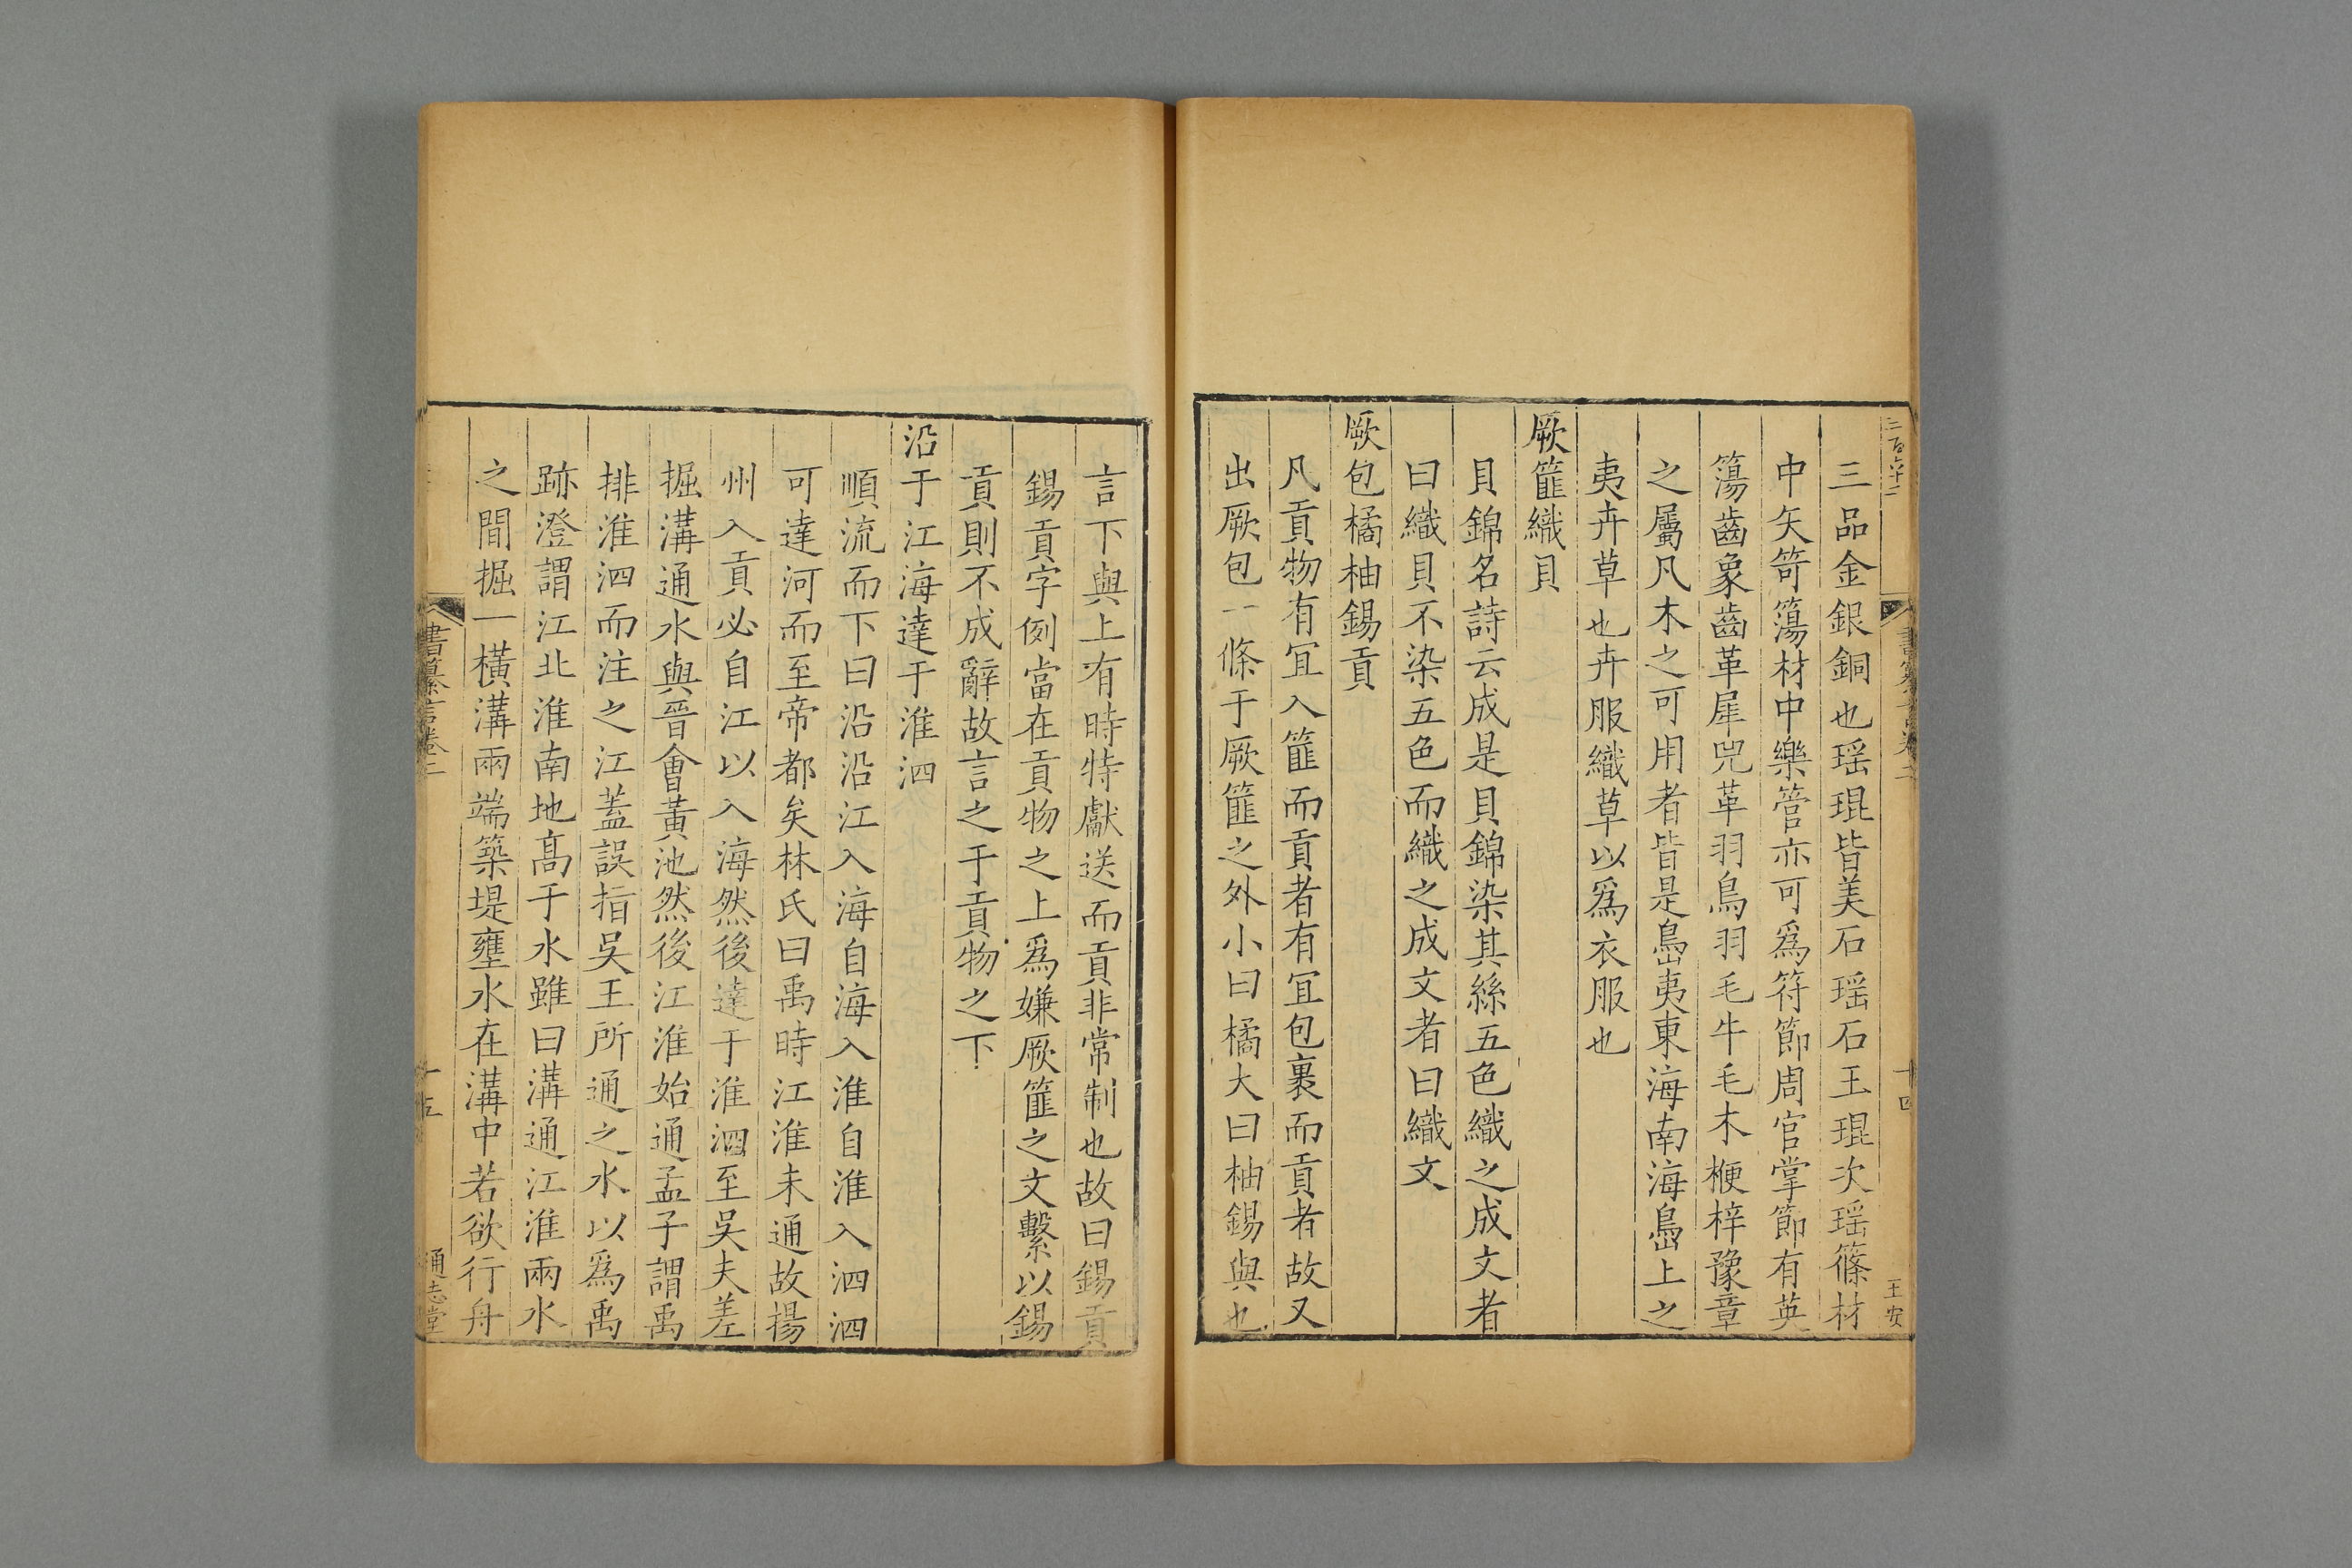 三品金銀銅也瑶琨皆美石瑶石王琨次瑶篠材
中矢笴簜材中樂管亦可爲符節周官掌節有英
簜齒象齒革犀兕革羽鳥羽毛牛毛木楩梓豫章
之屬凡木之可用者皆是島夷東海南海島上之
夷卉草也卉服織草以爲衣服也
厥篚織貝
貝錦名詩云成是貝錦染其絲五色織之成文者
曰織貝不染五色而織之成文者曰織文
厥包橘柚錫貢
凡貢物有宜入篚而貢者有宜包裹而貢者故又
出厥包一條于厥篚之外小曰橘大曰柚錫與也
二百六十二
書纂言卷二
十四
王安
言下與上有時特獻送而貢非常制也故曰錫貢
錫貢字例當在貢物之上爲嫌厥篚之文繫以錫
貢則不成辭故言之于貢物之下
沿于江海達于淮泗
順流而下曰沿沿江入海自海入淮自淮入泗泗
可達河而至帝都矣林氏曰禹時江淮未通故揚
州入貢必自江以入海然後達于淮泗至吳夫差
掘溝通水與晉會黃池然後江淮始通孟子謂禹
排淮泗而注之江蓋誤指吳王所通之水以爲禹
跡澄謂江北淮南地高于水雖曰溝通江淮兩水
之間掘一橫溝兩端築堤壅水在溝中若欲行舟
書纂言卷二
十五
通志堂